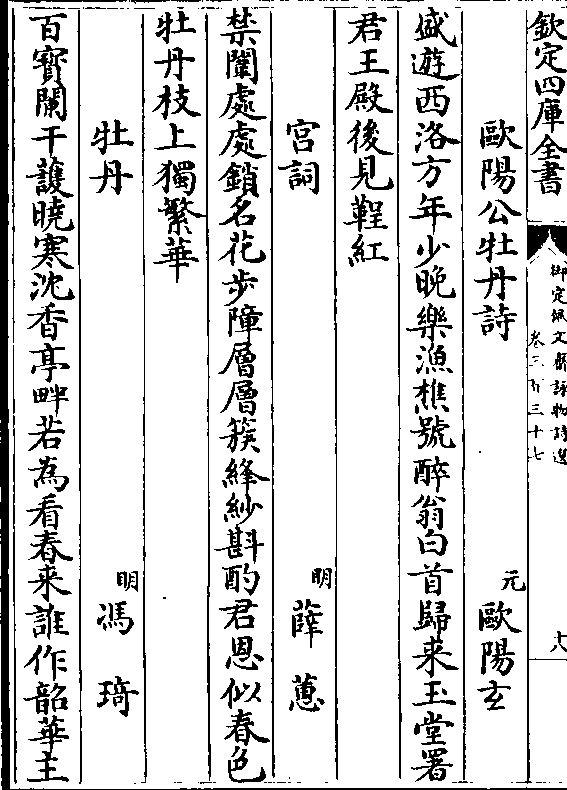 欽定四庫全書
御定佩文齋詠物詩選
卷三百三十七
十八
歐陽公牡丹詩 元 歐陽玄
盛遊西洛方年少晚樂漁樵號醉翁白首歸来玉堂署
君王殿後見鞓紅
宮詞 明 薛蕙
禁闈處處鎖名花步障層層簇絳紗斟酌君恩似春色
牡丹枝上獨繁華
牡丹 明 馮琦
百寳闌干護曉寒沈香亭畔若為看春来誰作韶華主